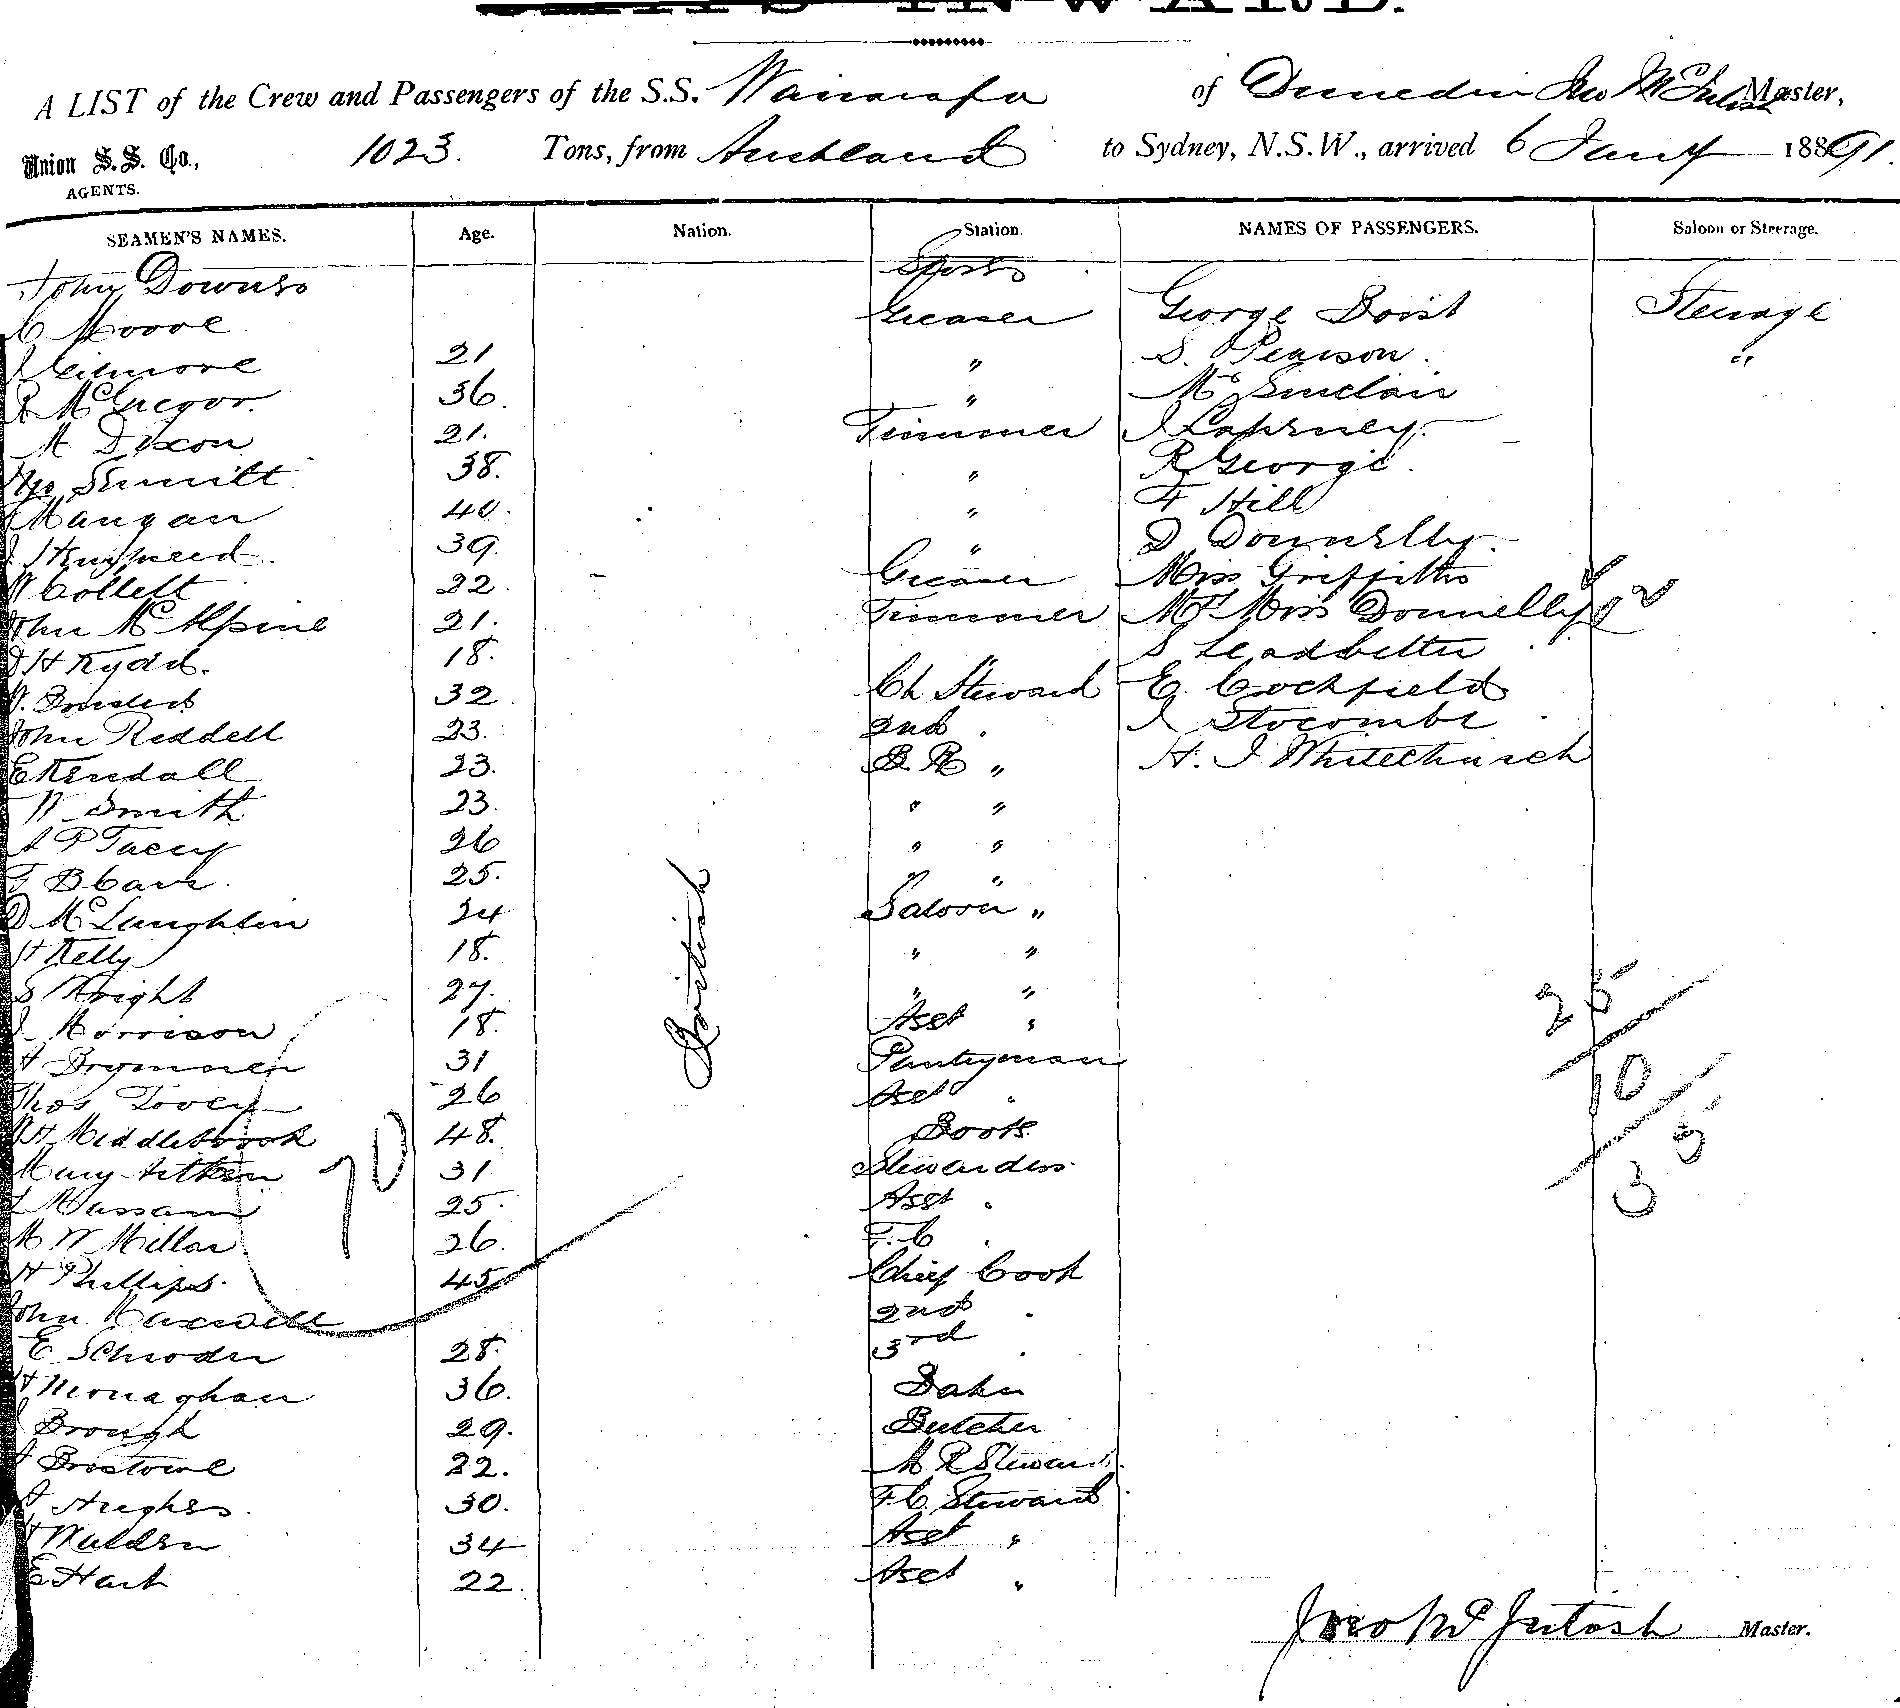 INWARD.
A LIST of the Crew and Passengers of the S.S. Wairarapa of Dunedin Jno McIntosh Master,
Union S. S. Co., 1023. Tons, from Auckland to Sydney, N.S.W., arrived 6 Jany 1891.
AGENTS.
SEAMEN'S NAMES. Age. Nation. Station. NAMES OF PASSENGERS. Saloon or Steerage.
John Downes
C Moore Greaser George Steerage
Gilmore 21 " S. Pearson. "
R McGregor. 36. " Mr Sinclair
M Dixon 21. Trimmer
Schmitt 38. " R George.
Mangan 40. " F Hill
39. " D Donnelly.
W Collett 22. Greaser Miss Griffiths
John McAlpine 21. Trimmer Mr & Miss Donnelly 2
D H Kydd. 18. " S Leadbetter
W. 32 Ch Steward E. Cockfield
John Reddell 23. 2nd " J Stocombe
E Kendall 23. B. R " H. J Whitechurch
W Smith 23. " "
A P Tacey 26 " "
F B Carr. 25. " "
D McLaughlin 24 Saloon "
H Kelly 18. " "
S Knight 27. " "
J Morrison 18. Asst "
A Drymner 31 Pantryman
Thos Tovey 26 Asst "
W H Middlebrook 48. Boots
Mary Aitken 31 Stewardess.
L Massam 25. Asst "
M W Millar 26. F. C "
H Phillips. 45 Chief Cook
John Maxwell 2nd "
E Schroder 28. 3rd "
H Monaghan 36. Baker
Brough 29. Butcher
A Bristowe 22. M R Steward.
A Hughes. 30. F. C. Steward
H Walden 34 Asst "
E Hart 22. Asst "
British
70
25
10
35
Jno McIntosh Master.